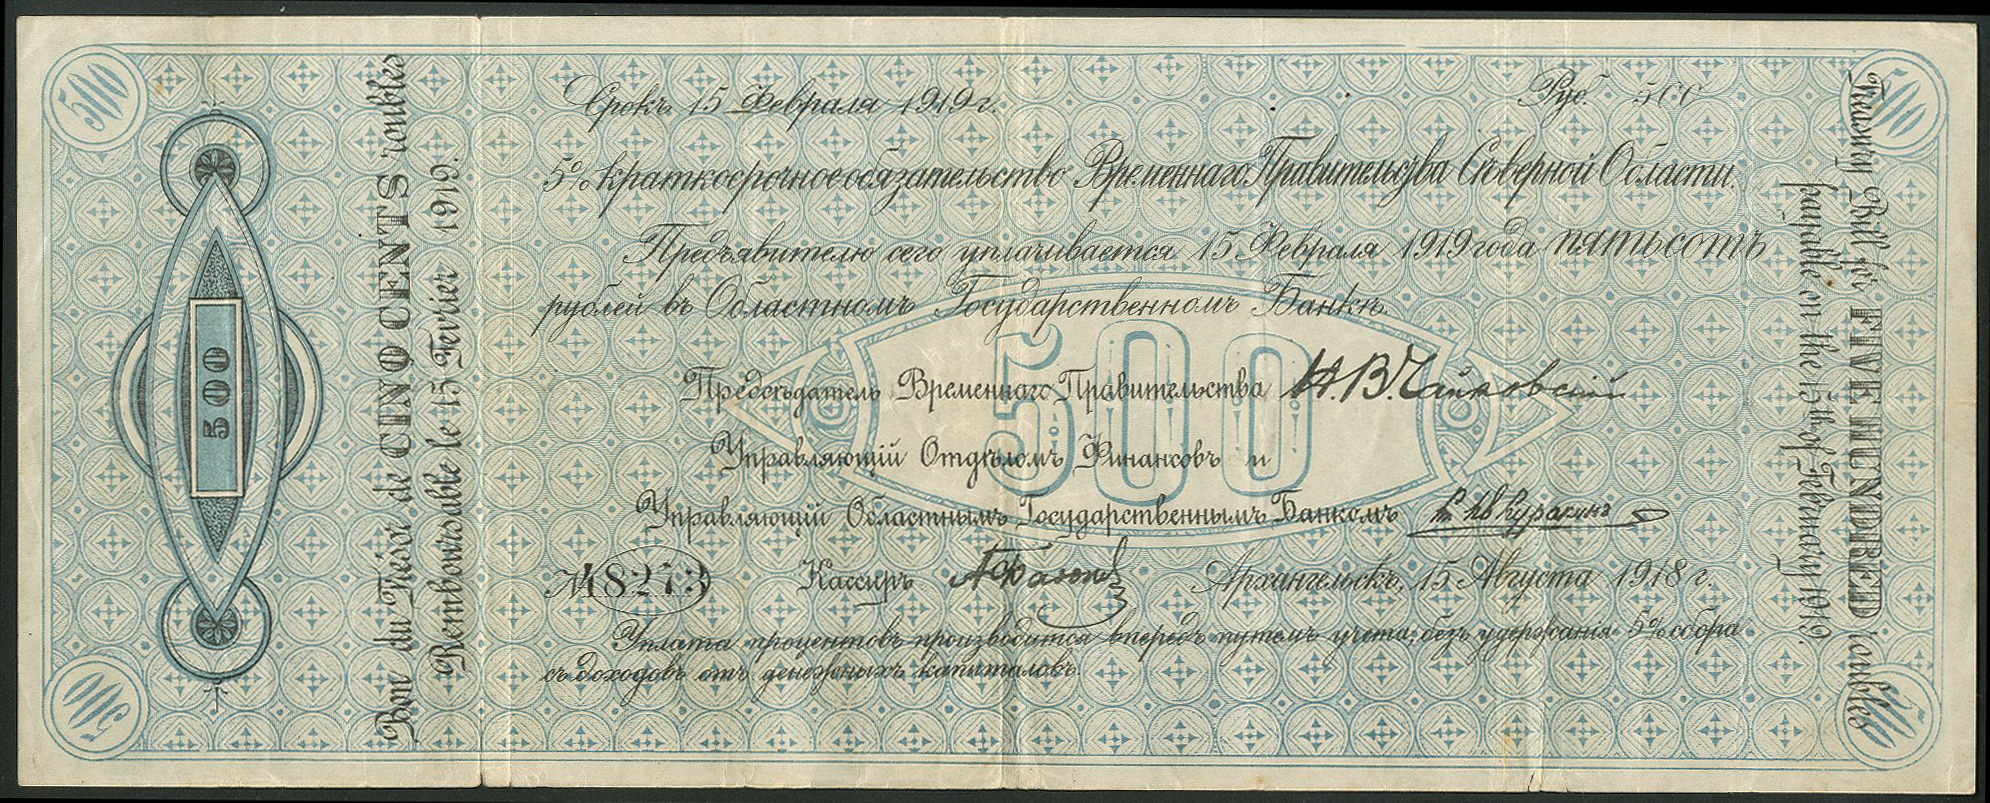 500
500
Срокъ 15 Февраля 1919 г.
Руб. 500
5% краткосрочное обязательство Временнаго Правительства Сѣверной Области.
Предъявителю сего уплачивается 15 Февраля 1919 года пятьсотъ
рублей въ Областномъ Государственномъ Банкѣ.
500
Предсѣдатель Временнаго Правительства Н. В. Чайковскій
Управляющій Отдѣломъ Финансовъ и
Управляющій Областнымъ Государственнымъ Банкомъ
№ 48273
Кассиръ
Архангельскъ, 15 Августа 1918 г.
Уплата процентовъ производится впередъ путемъ учета, безъ удержанія 5% сбора
съ доходовъ отъ денежныхъ капиталовъ.
500
Bon du Trésor de CINQ CENTS roubles
Remboursable le 15 Fevrier 1919.
Treasury Bill for FIVE HUNDRED roubles
payable on the 15th of February 1919.
500
500